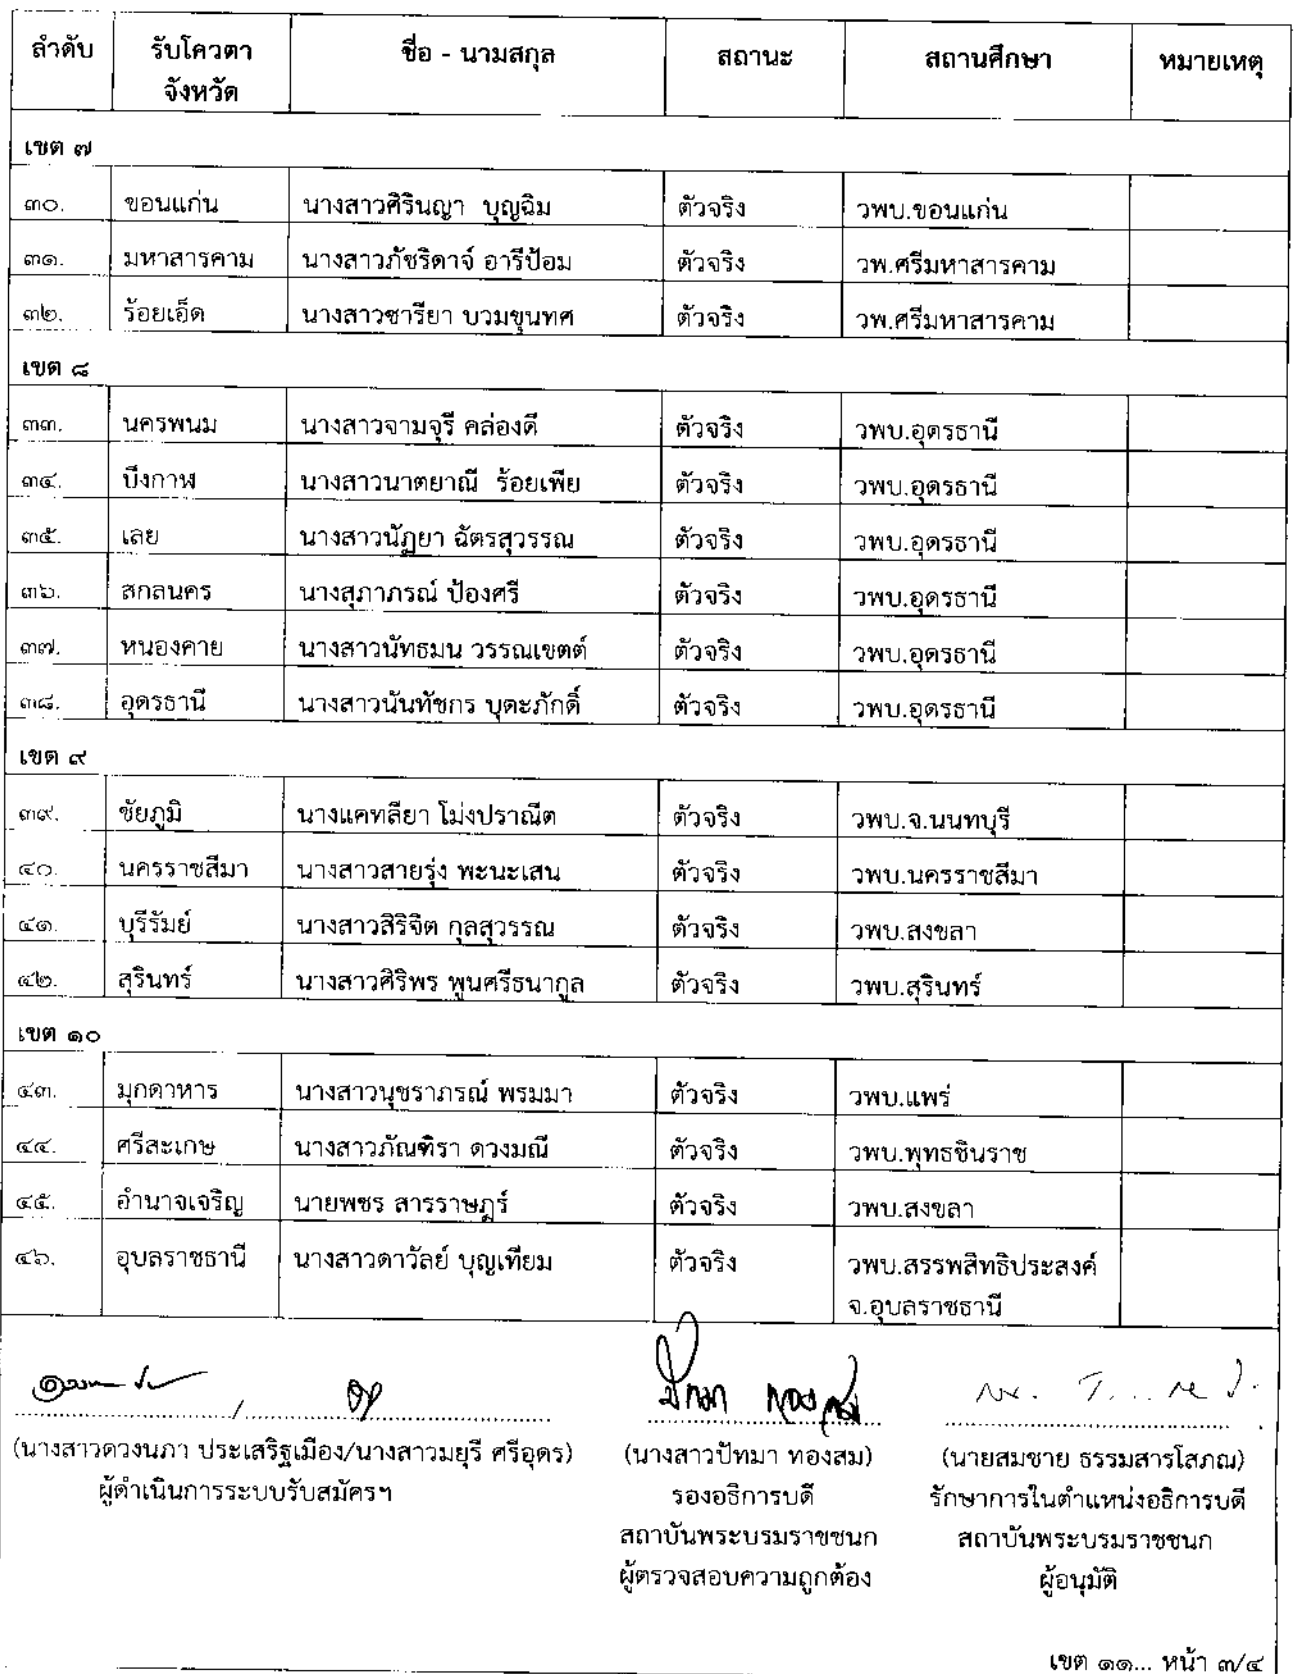 ลำดับ รับโควตา ชื่อ - นามสกุล สถานะ สถานศึกษา หมายเหตุ
จังหวัด
เขต ๗
๓๐. ขอนแก่น นางสาวศิรินญา บุญฉิม ตัวจริง วพบ.ขอนแก่น
๓๑. มหาสารคาม นางสาวภัชริดาจ์ อารีป้อม ตัวจริง วพ.ศรีมหาสารคาม
๓๒. ร้อยเอ็ด นางสาวซารียา บวมขุนทศ ตัวจริง วพ.ศรีมหาสารคาม
เขต ๘
๓๓. นครพนม นางสาวจามจุรี คล่องดี ตัวจริง วพบ.อุดรธานี
๓๔. บึงกาฬ นางสาวนาตยาณี ร้อยเพีย ตัวจริง วพบ.อุดรธานี
๓๕. เลย นางสาวนัฏยา ฉัตรสุวรรณ ตัวจริง วพบ.อุดรธานี
๓๖. สกลนคร นางสุภาภรณ์ ป้องศรี ตัวจริง วพบ.อุดรธานี
๓๗. หนองคาย นางสาวนัทธมน วรรณเขตต์ ตัวจริง วพบ.อุดรธานี
๓๘. อุดรธานี นางสาวนันทัชกร บุตะภักดิ์ ตัวจริง วพบ.อุดรธานี
เขต ๙
๓๙. ชัยภูมิ นางแคทลียา โม่งปราณีต ตัวจริง วพบ.จ.นนทบุรี
๔๐. นครราชสีมา นางสาวสายรุ่ง พะนะเสน ตัวจริง วพบ.นครราชสีมา
๔๑. บุรีรัมย์ นางสาวสิริจิต กุลสุวรรณ ตัวจริง วพบ.สงขลา
๔๒. สุรินทร์ นางสาวศิริพร พูนศรีธนากูล ตัวจริง วพบ.สุรินทร์
เขต ๑๐
๔๓. มุกดาหาร นางสาวนุชราภรณ์ พรมมา ตัวจริง วพบ.แพร่
๔๔. ศรีสะเกษ นางสาวภัณฑิรา ดวงมณี ตัวจริง วพบ.พุทธชินราช
๔๕. อำนาจเจริญ นายพชร สารราษฎร์ ตัวจริง วพบ.สงขลา
๔๖. อุบลราชธานี นางสาวดาวัลย์ บุญเทียม ตัวจริง วพบ.สรรพสิทธิประสงค์
จ.อุบลราชธานี
ปัทมา ทองสม
(นางสาวดวงนภา ประเสริฐเมือง/นางสาวมยุรี ศรีอุดร) (นางสาวปัทมา ทองสม) (นายสมชาย ธรรมสารโสภณ)
ผู้ดำเนินการระบบรับสมัครฯ รองอธิการบดี รักษาการในตำแหน่งอธิการบดี
สถาบันพระบรมราชชนก สถาบันพระบรมราชชนก
ผู้ตรวจสอบความถูกต้อง ผู้อนุมัติ
เขต ๑๑... หน้า ๓/๔